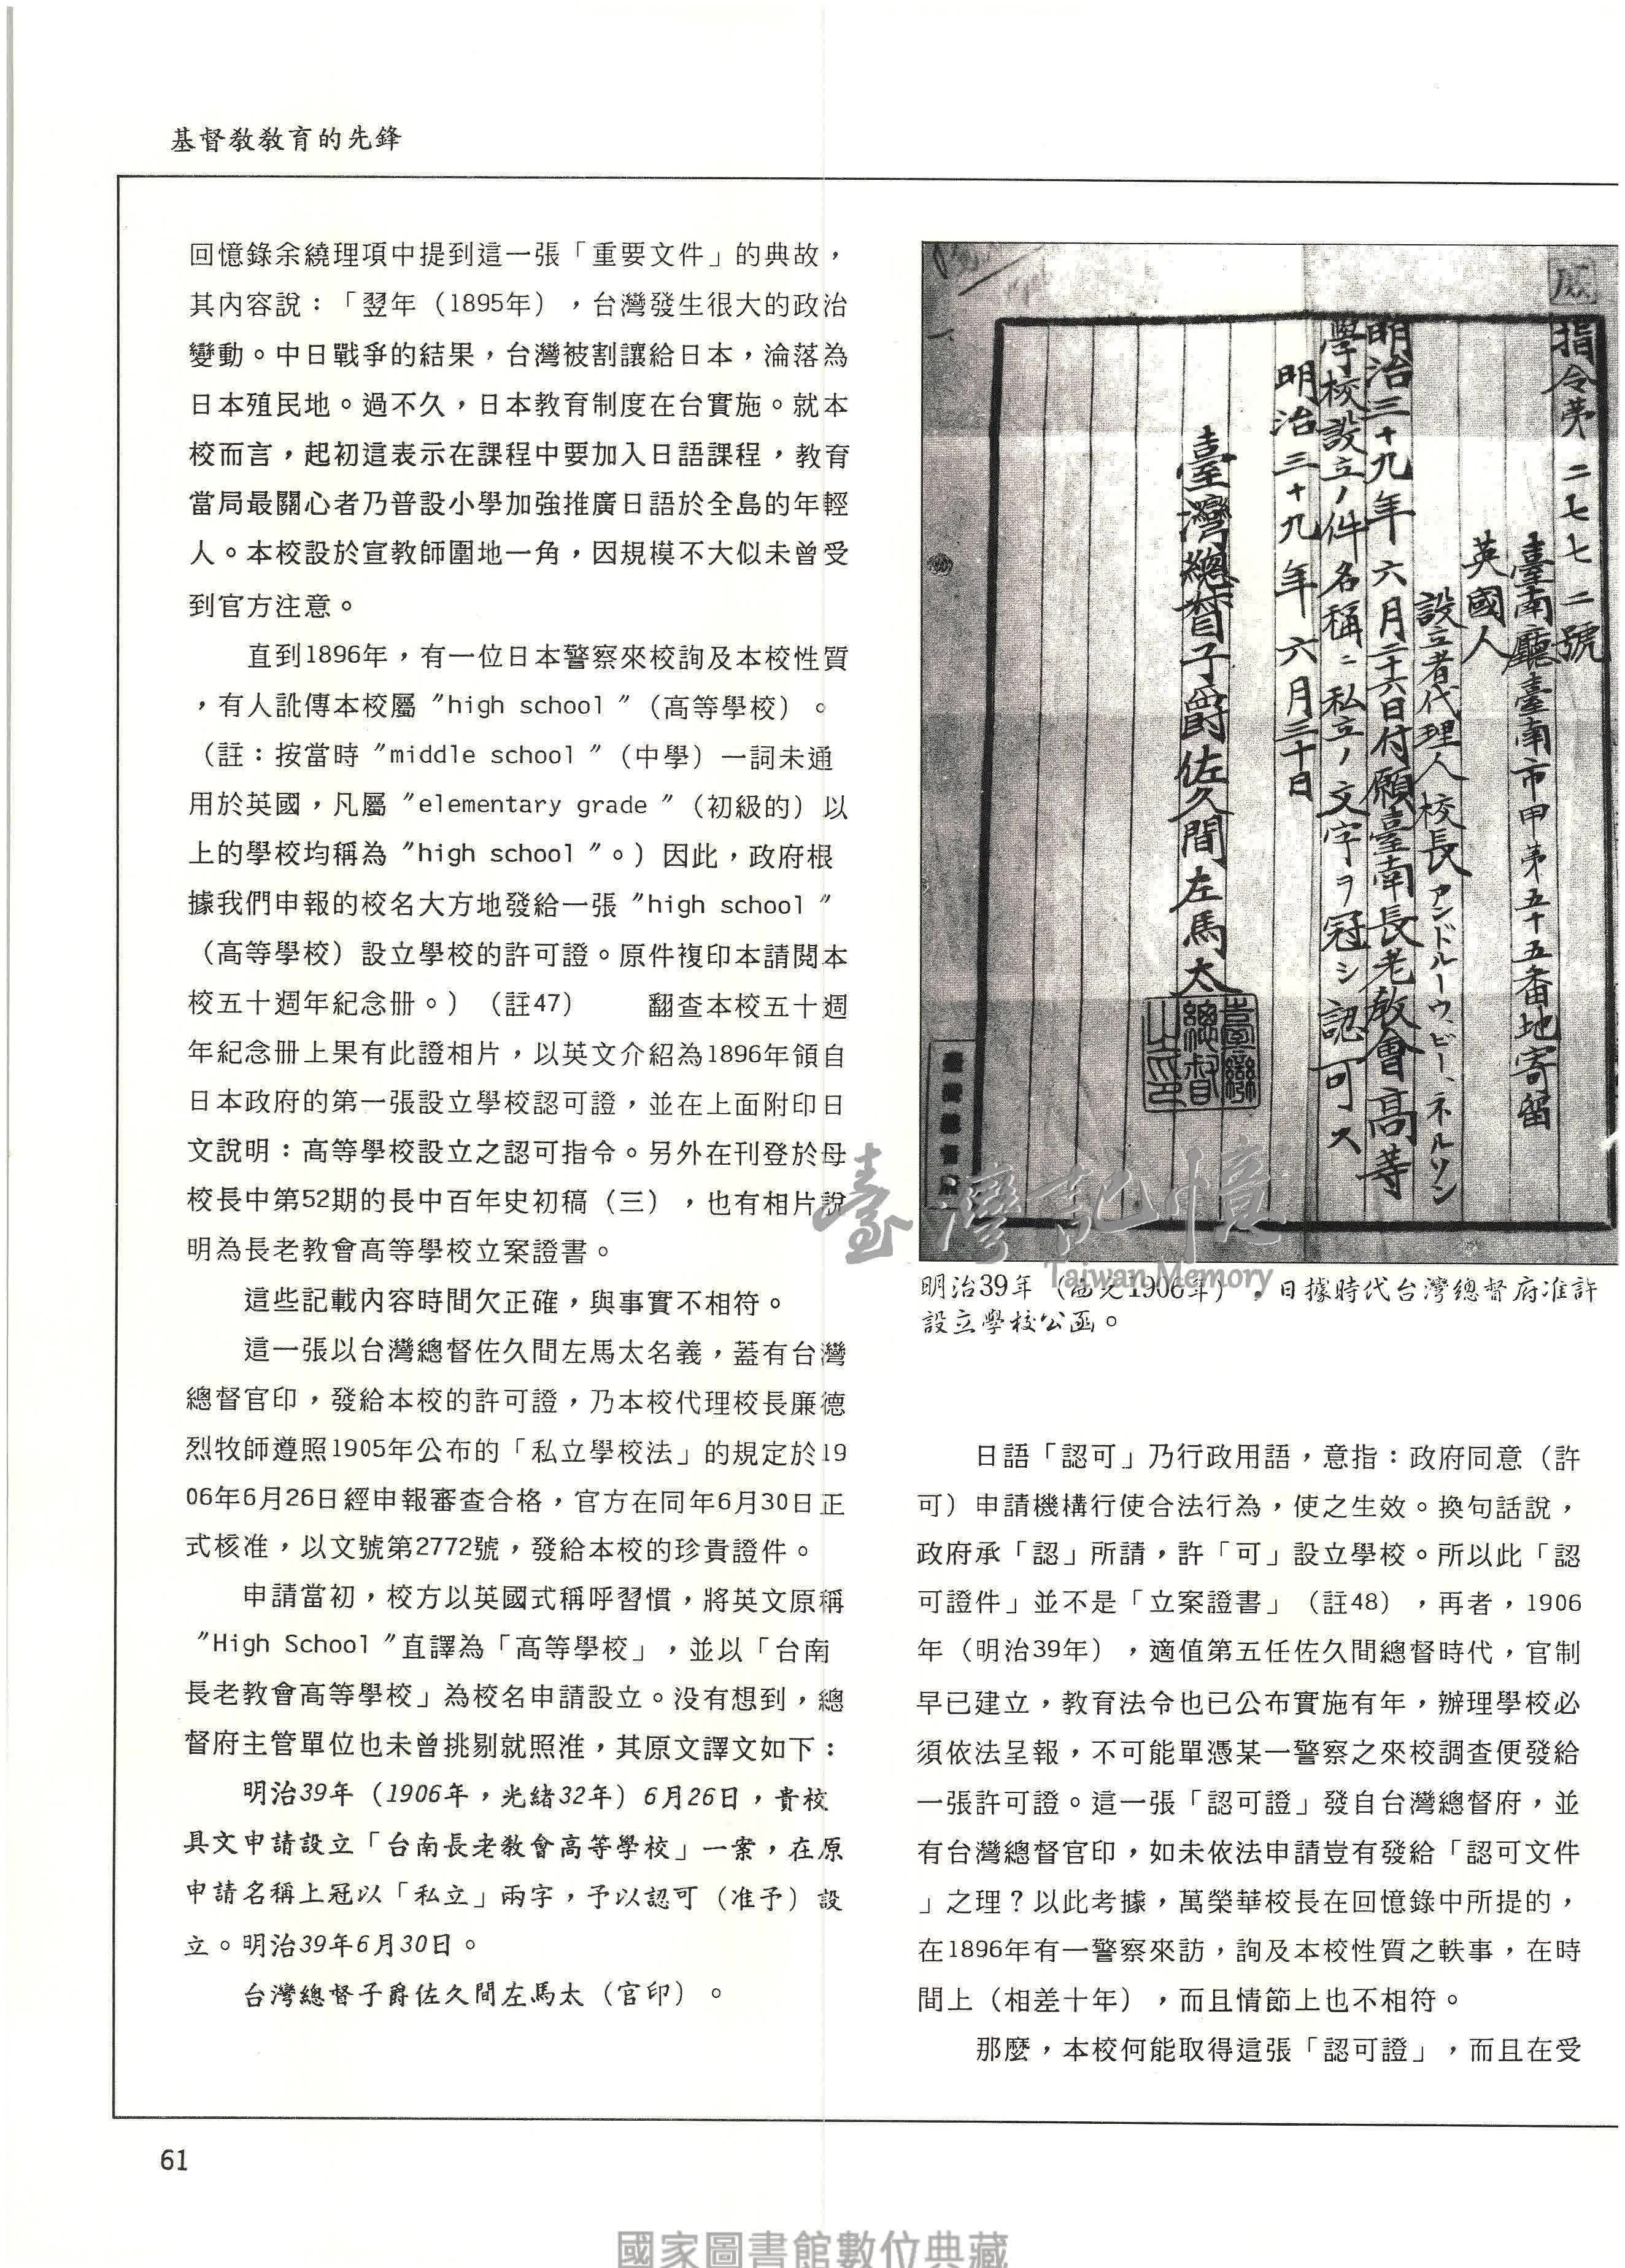 基督教教育的先鋒
回憶錄余繞理項中提到這一張「重要文件」的典故，
其內容說：「翌年（1895年），台灣發生很大的政治
變動。中日戰爭的結果，台灣被割讓給日本，淪落為
日本殖民地。過不久，日本教育制度在台實施。就本
校而言，起初這表示在課程中要加入日語課程，教育
當局最關心者乃普設小學加強推廣日語於全島的年輕
人。本校設於宣教師圍地一角，因規模不大似未曾受
到官方注意。
直到1896年，有一位日本警察來校詢及本校性質
，有人訛傳本校屬〞high school〞（高等學校）。
（註：按當時〞middle school〞（中學）一詞未通
用於英國，凡屬〞elementary grade〞（初級的）以
上的學校均稱為〞high school〞。）因此，政府根
據我們申報的校名大方地發給一張〞high school〞
（高等學校）設立學校的許可證。原件複印本請閱本
校五十週年紀念冊。）（註47）　　翻查本校五十週
年紀念冊上果有此證相片，以英文介紹為1896年領自
日本政府的第一張設立學校認可證，並在上面附印日
文說明：高等學校設立之認可指令。另外在刊登於母
校長中第52期的長中百年史初稿（三），也有相片說
明為長老教會高等學校立案證書。
這些記載內容時間欠正確，與事實不相符。
這一張以台灣總督佐久間左馬太名義，蓋有台灣
總督官印，發給本校的許可證，乃本校代理校長廉德
烈牧師遵照1905年公布的「私立學校法」的規定於19
06年6月26日經申報審查合格，官方在同年6月30日正
式核准，以文號第2772號，發給本校的珍貴證件。
申請當初，校方以英國式稱呼習慣，將英文原稱
〞High School〞直譯為「高等學校」，並以「台南
長老教會高等學校」為校名申請設立。没有想到，總
督府主管單位也未曾挑剔就照淮，其原文譯文如下：
明治39年（1906年，光緒32年）6月26日，貴校
具文申請設立「台南長老教會高等學校」一案，在原
申請名稱上冠以「私立」兩字，予以認可（准予）設
立。明治39年6月30日。
台灣總督子爵佐久間左馬太（官印）。
指令第二七七二號
臺南廳臺南市甲第五十五番地寄留
英國人
設立者代理人校長アンドルーウビー、ネルソン
明治三十九年六月二十六日付願臺南長老教會高等
學校設立ノ件名稱ニ私立ノ文字ヲ冠シ認可ス
明治三十九年六月三十日
臺灣總督子爵佐久間左馬太
臺灣總督之印
明治39年（西元1906年），日據時代台灣總督府准許
設立學校公函。
日語「認可」乃行政用語，意指：政府同意（許
可）申請機構行使合法行為，使之生效。換句話說，
政府承「認」所請，許「可」設立學校。所以此「認
可證件」並不是「立案證書」（註48），再者，1906
年（明治39年），適值第五任佐久間總督時代，官制
早已建立，教育法令也已公布實施有年，辦理學校必
須依法呈報，不可能單憑某一警察之來校調查便發給
一張許可證。這一張「認可證」發自台灣總督府，並
有台灣總督官印，如未依法申請豈有發給「認可文件
」之理？以此考據，萬榮華校長在回憶錄中所提的，
在1896年有一警察來訪，詢及本校性質之軼事，在時
間上（相差十年），而且情節上也不相符。
那麼，本校何能取得這張「認可證」，而且在受
61
臺灣記憶
Taiwan Memory
國家圖書館數位典藏